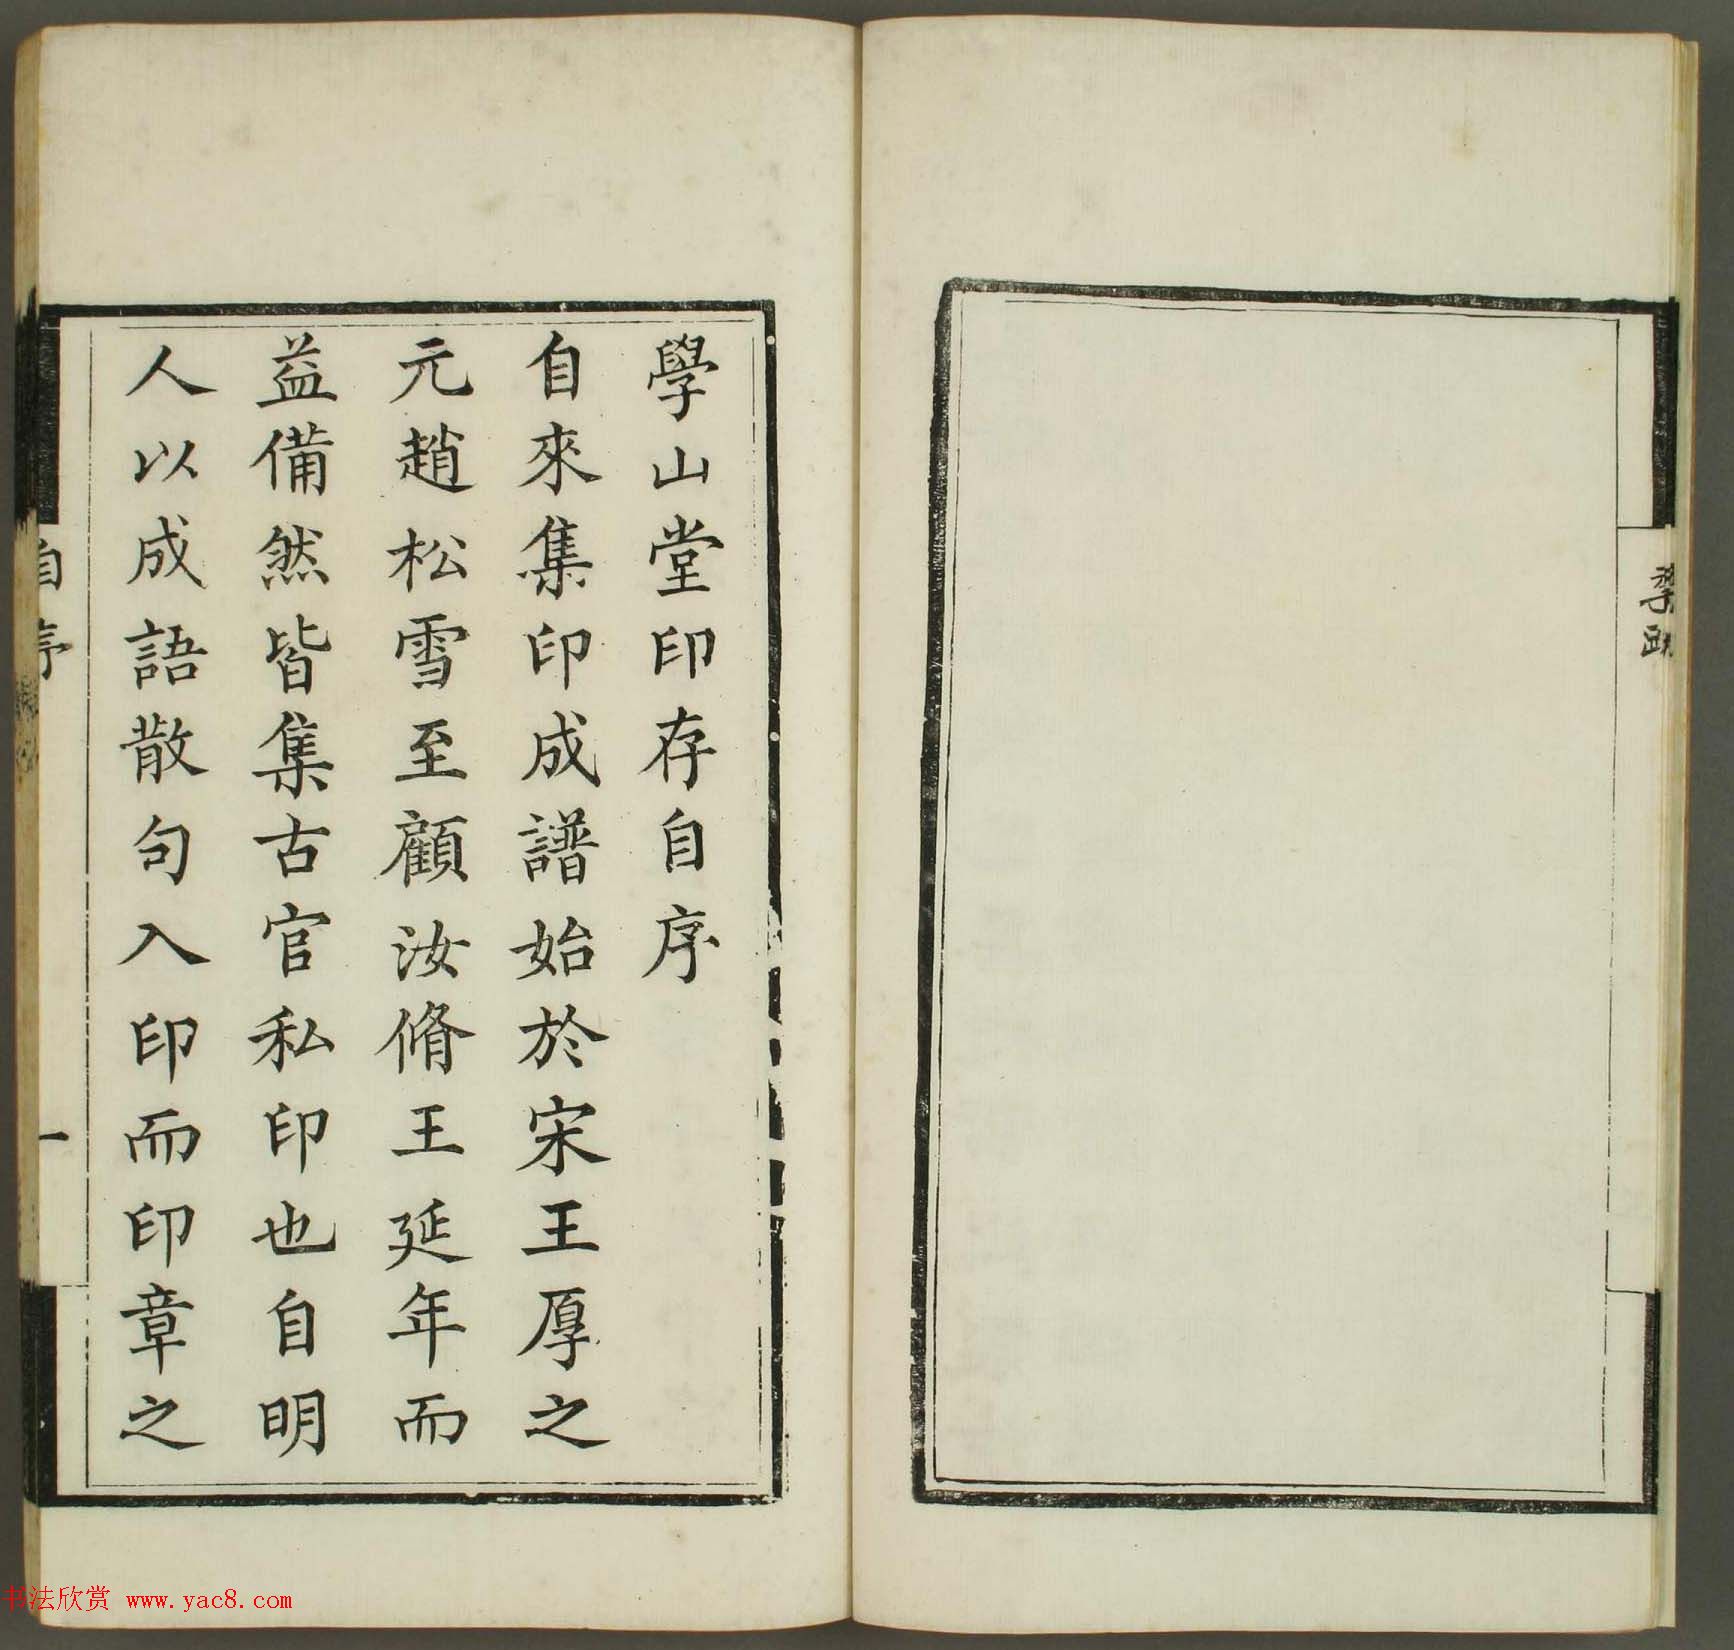 學山堂印存自序
自來集印成譜始於宋王厚之
元趙松雪至顧汝脩王延年而
益備然皆集古官私印也自明
人以成語散句入印而印章之
自序
一
书法欣赏 www.yac8.com